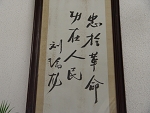 忠於革命
功在人民
刘瑞龙